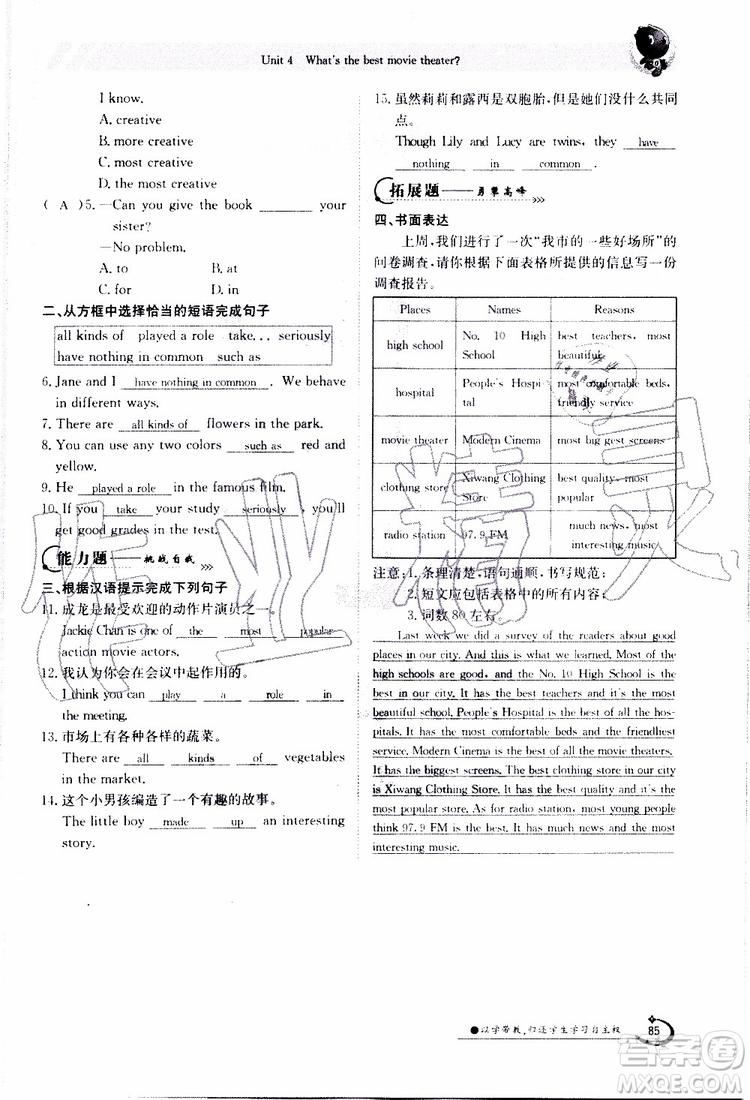 Unit 4 What's the best movie theater?
I know.
A. creative
B. more creative
C. most creative
D. the most creative
( A )5. —Can you give the book ______ your
sister?
—No problem.
A. to B. at
C. for D. in
二、从方框中选择恰当的短语完成句子
all kinds of played a role take... seriously
have nothing in common such as
6. Jane and I have nothing in common. We behave
in different ways.
7. There are all kinds of flowers in the park.
8. You can use any two colors such as red and
yellow.
9. He played a role in the famous film.
10. If you take your study seriously, you'll
get good grades in the test.
能力题——挑战自我
三、根据汉语提示完成下列句子
11. 成龙是最受欢迎的动作片演员之一。
Jackie Chan is one of the most popular
action movie actors.
12. 我认为你会在会议中起作用的。
I think you can play a role in
the meeting.
13. 市场上有各种各样的蔬菜。
There are all kinds of vegetables
in the market.
14. 这个小男孩编造了一个有趣的故事。
The little boy made up an interesting
story.
15. 虽然莉莉和露西是双胞胎，但是她们没什么共同
点。
Though Lily and Lucy are twins, they have
nothing in common.
拓展题——勇攀高峰
四、书面表达
上周，我们进行了一次“我市的一些好场所”的
问卷调查，请你根据下面表格所提供的信息写一份
调查报告。
Places Names Reasons
high school No. 10 High School best teachers, most beautiful
hospital People's Hospital most comfortable beds, friendly service
movie theater Modern Cinema most biggest screens
clothing store Xiwang Clothing Store best quality, most popular
radio station 97.9 FM much news, most interesting music
注意：1. 条理清楚，语句通顺，书写规范；
2. 短文应包括表格中的所有内容；
3. 词数 80 左右。
Last week we did a survey of the readers about good
places in our city. We learned something. Most of the
high schools are good, and the No. 10 High School is the
best in our city. It has the best teachers and the most
beautiful school. People's Hospital is the best of all the hos-
pitals. It has the most comfortable beds and the friendliest
service. Modern Cinema is the best of all the movie theaters.
It has the biggest screens. The best clothing store in our city
is Xiwang Clothing Store. It has the best quality and is the
most popular store. As for radio station, most young people
think 97.9 FM is the best. It has much news and the most
interesting music.
以学带教，归还学生学习自主权
85
作业精灵
答案卷
MXQE.COM